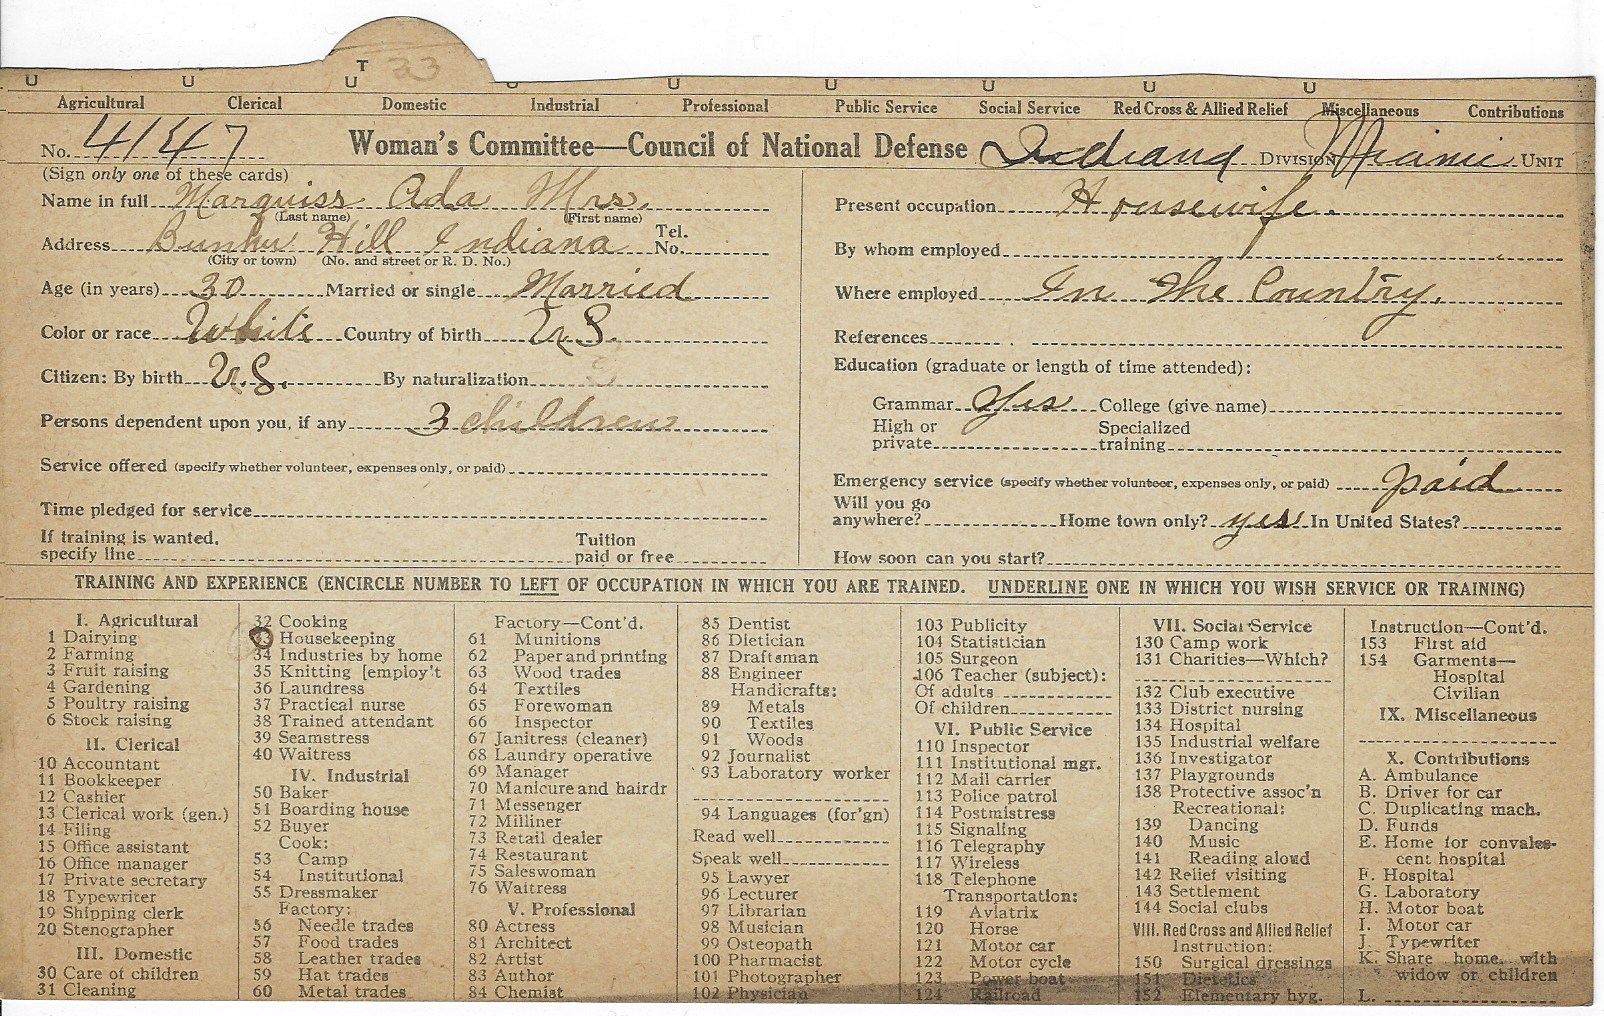 T 33
U U U U U U U U U
Agricultural Clerical Domestic Industrial Professional Public Service Social Service Red Cross & Allied Relief Miscellaneous Contributions
No. 4147 Woman's Committee—Council of National Defense Indiana DIVISION Miami UNIT
(Sign only one of these cards)
Name in full Marquiss Ada Mrs.
(Last name) (First name)
Address Bunker Hill Indiana Tel. No.
(City or town) (No. and street or R. D. No.)
Age (in years) 30 Married or single Married
Color or race White Country of birth U.S.
Citizen: By birth U.S. By naturalization
Persons dependent upon you, if any 3 children
Service offered (specify whether volunteer, expenses only, or paid)
Time pledged for service
If training is wanted, specify line Tuition paid or free
Present occupation Housewife.
By whom employed
Where employed In the Country.
References
Education (graduate or length of time attended):
Grammar Yes College (give name)
High or private Specialized training
Emergency service (specify whether volunteer, expenses only, or paid) paid
Will you go anywhere? Home town only? yes In United States?
How soon can you start?
TRAINING AND EXPERIENCE (ENCIRCLE NUMBER TO LEFT OF OCCUPATION IN WHICH YOU ARE TRAINED. UNDERLINE ONE IN WHICH YOU WISH SERVICE OR TRAINING)
I. Agricultural
1 Dairying
2 Farming
3 Fruit raising
4 Gardening
5 Poultry raising
6 Stock raising
II. Clerical
10 Accountant
11 Bookkeeper
12 Cashier
13 Clerical work (gen.)
14 Filing
15 Office assistant
16 Office manager
17 Private secretary
18 Typewriter
19 Shipping clerk
20 Stenographer
III. Domestic
30 Care of children
31 Cleaning
32 Cooking
33 Housekeeping
34 Industries by home
35 Knitting [employ't
36 Laundress
37 Practical nurse
38 Trained attendant
39 Seamstress
40 Waitress
IV. Industrial
50 Baker
51 Boarding house
52 Buyer
Cook:
53 Camp
54 Institutional
55 Dressmaker
Factory:
56 Needle trades
57 Food trades
58 Leather trades
59 Hat trades
60 Metal trades
Factory—Cont'd.
61 Munitions
62 Paper and printing
63 Wood trades
64 Textiles
65 Forewoman
66 Inspector
67 Janitress (cleaner)
68 Laundry operative
69 Manager
70 Manicure and hairdr
71 Messenger
72 Milliner
73 Retail dealer
74 Restaurant
75 Saleswoman
76 Waitress
V. Professional
80 Actress
81 Architect
82 Artist
83 Author
84 Chemist
85 Dentist
86 Dietician
87 Draftsman
88 Engineer
Handicrafts:
89 Metals
90 Textiles
91 Woods
92 Journalist
93 Laboratory worker
94 Languages (for'gn)
Read well
Speak well
95 Lawyer
96 Lecturer
97 Librarian
98 Musician
99 Osteopath
100 Pharmacist
101 Photographer
102 Physician
103 Publicity
104 Statistician
105 Surgeon
106 Teacher (subject):
Of adults
Of children
VI. Public Service
110 Inspector
111 Institutional mgr.
112 Mail carrier
113 Police patrol
114 Postmistress
115 Signaling
116 Telegraphy
117 Wireless
118 Telephone
Transportation:
119 Aviatrix
120 Horse
121 Motor car
122 Motor cycle
123 Power boat
124 Railroad
VII. Social Service
130 Camp work
131 Charities—Which?
132 Club executive
133 District nursing
134 Hospital
135 Industrial welfare
136 Investigator
137 Playgrounds
138 Protective assoc'n
Recreational:
139 Dancing
140 Music
141 Reading aloud
142 Relief visiting
143 Settlement
144 Social clubs
VIII. Red Cross and Allied Relief
Instruction:
150 Surgical dressings
151 Dietetics
152 Elementary hyg.
Instruction—Cont'd.
153 First aid
154 Garments—
Hospital
Civilian
IX. Miscellaneous
X. Contributions
A. Ambulance
B. Driver for car
C. Duplicating mach.
D. Funds
E. Home for convales-
cent hospital
F. Hospital
G. Laboratory
H. Motor boat
I. Motor car
J. Typewriter
K. Share home with
widow or children
L.